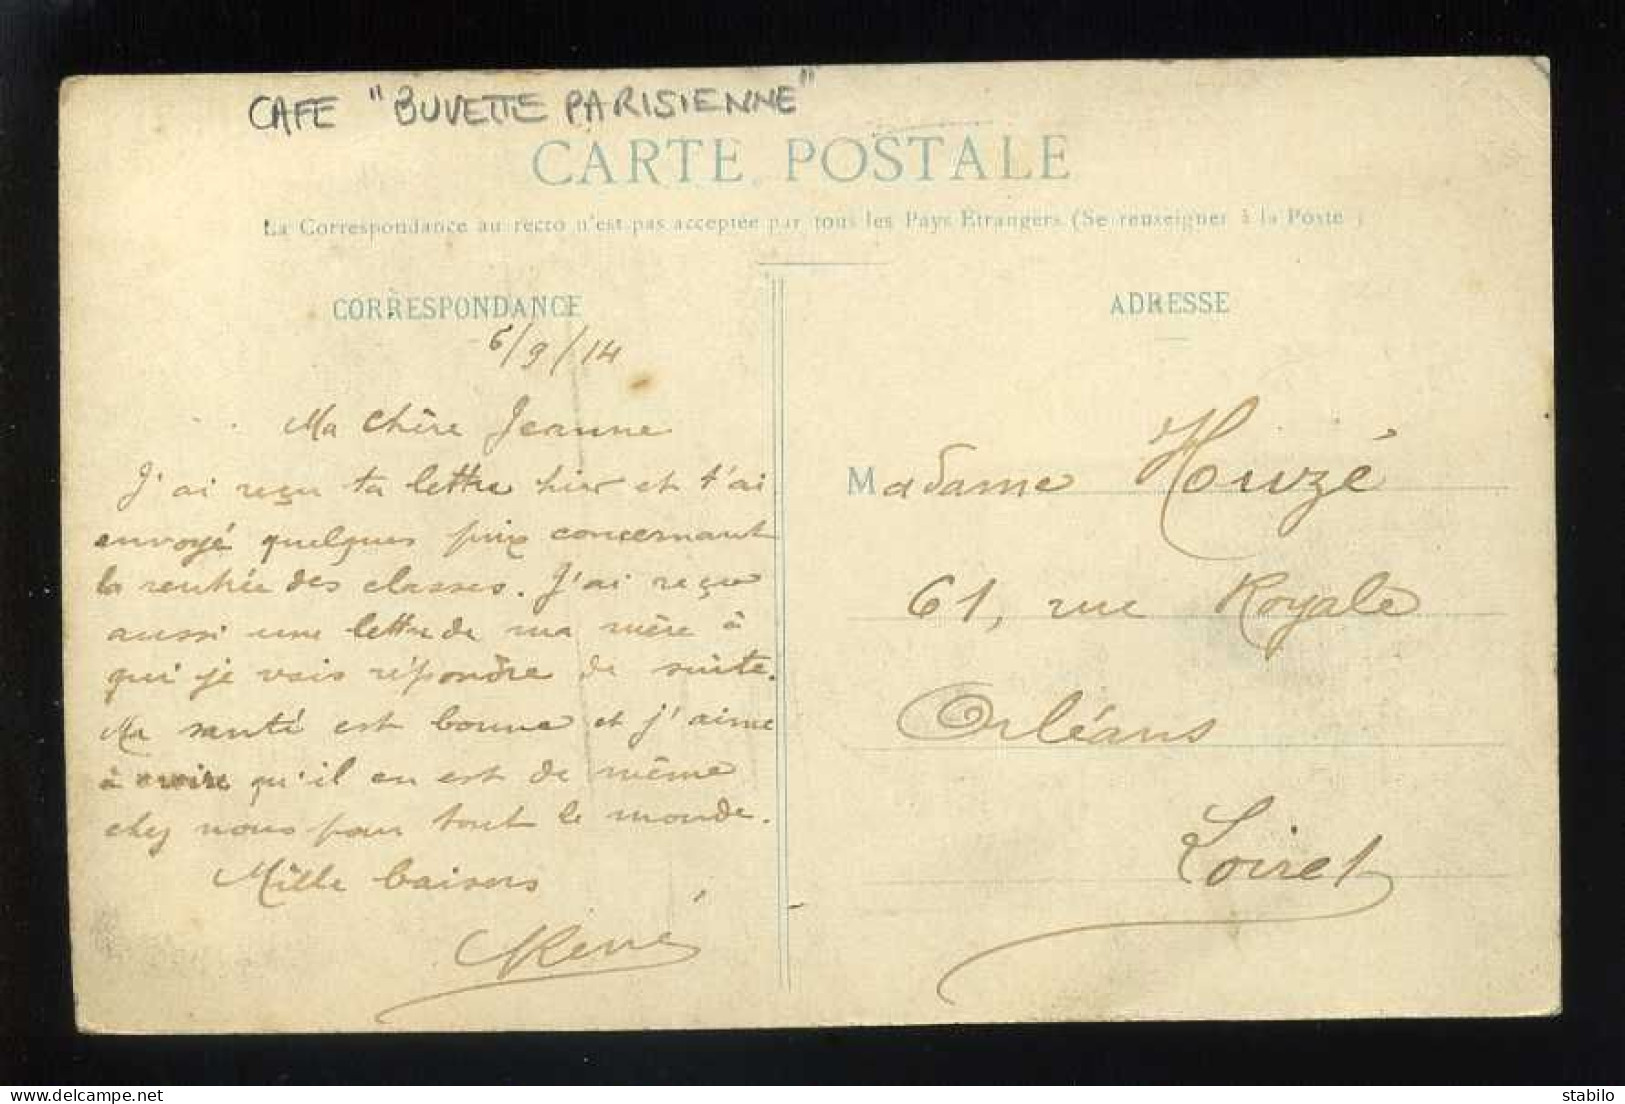 CAFE "BUVETTE PARISIENNE"
CARTE POSTALE
La Correspondance au recto n'est pas acceptée par tous les Pays Etrangers (Se renseigner à la Poste)
CORRESPONDANCE
6/9/14
Ma chère Jeanne
J'ai reçu ta lettre hier et t'ai
envoyé quelques prix concernant
la rentrée des classes. J'ai reçu
aussi une lettre de ma mère à
qui je vais répondre de suite.
Ma santé est bonne et j'aime
à croire qu'il en est de même
chez nous pour tout le monde.
Mille baisers
René
ADRESSE
Madame Houzé
61, rue Royale
Orléans
Loiret
delcampe.net
stabilo